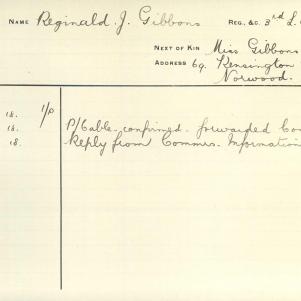 NAME Reginald. J. Gibbons
REG. &C. 3rd L.
NEXT OF KIN Miss Gibbons
ADDRESS 69. Kensington
Norwood.
18. 1/0
18. P/Cable confirmed. forwarded
18. Reply from Commrs. Information